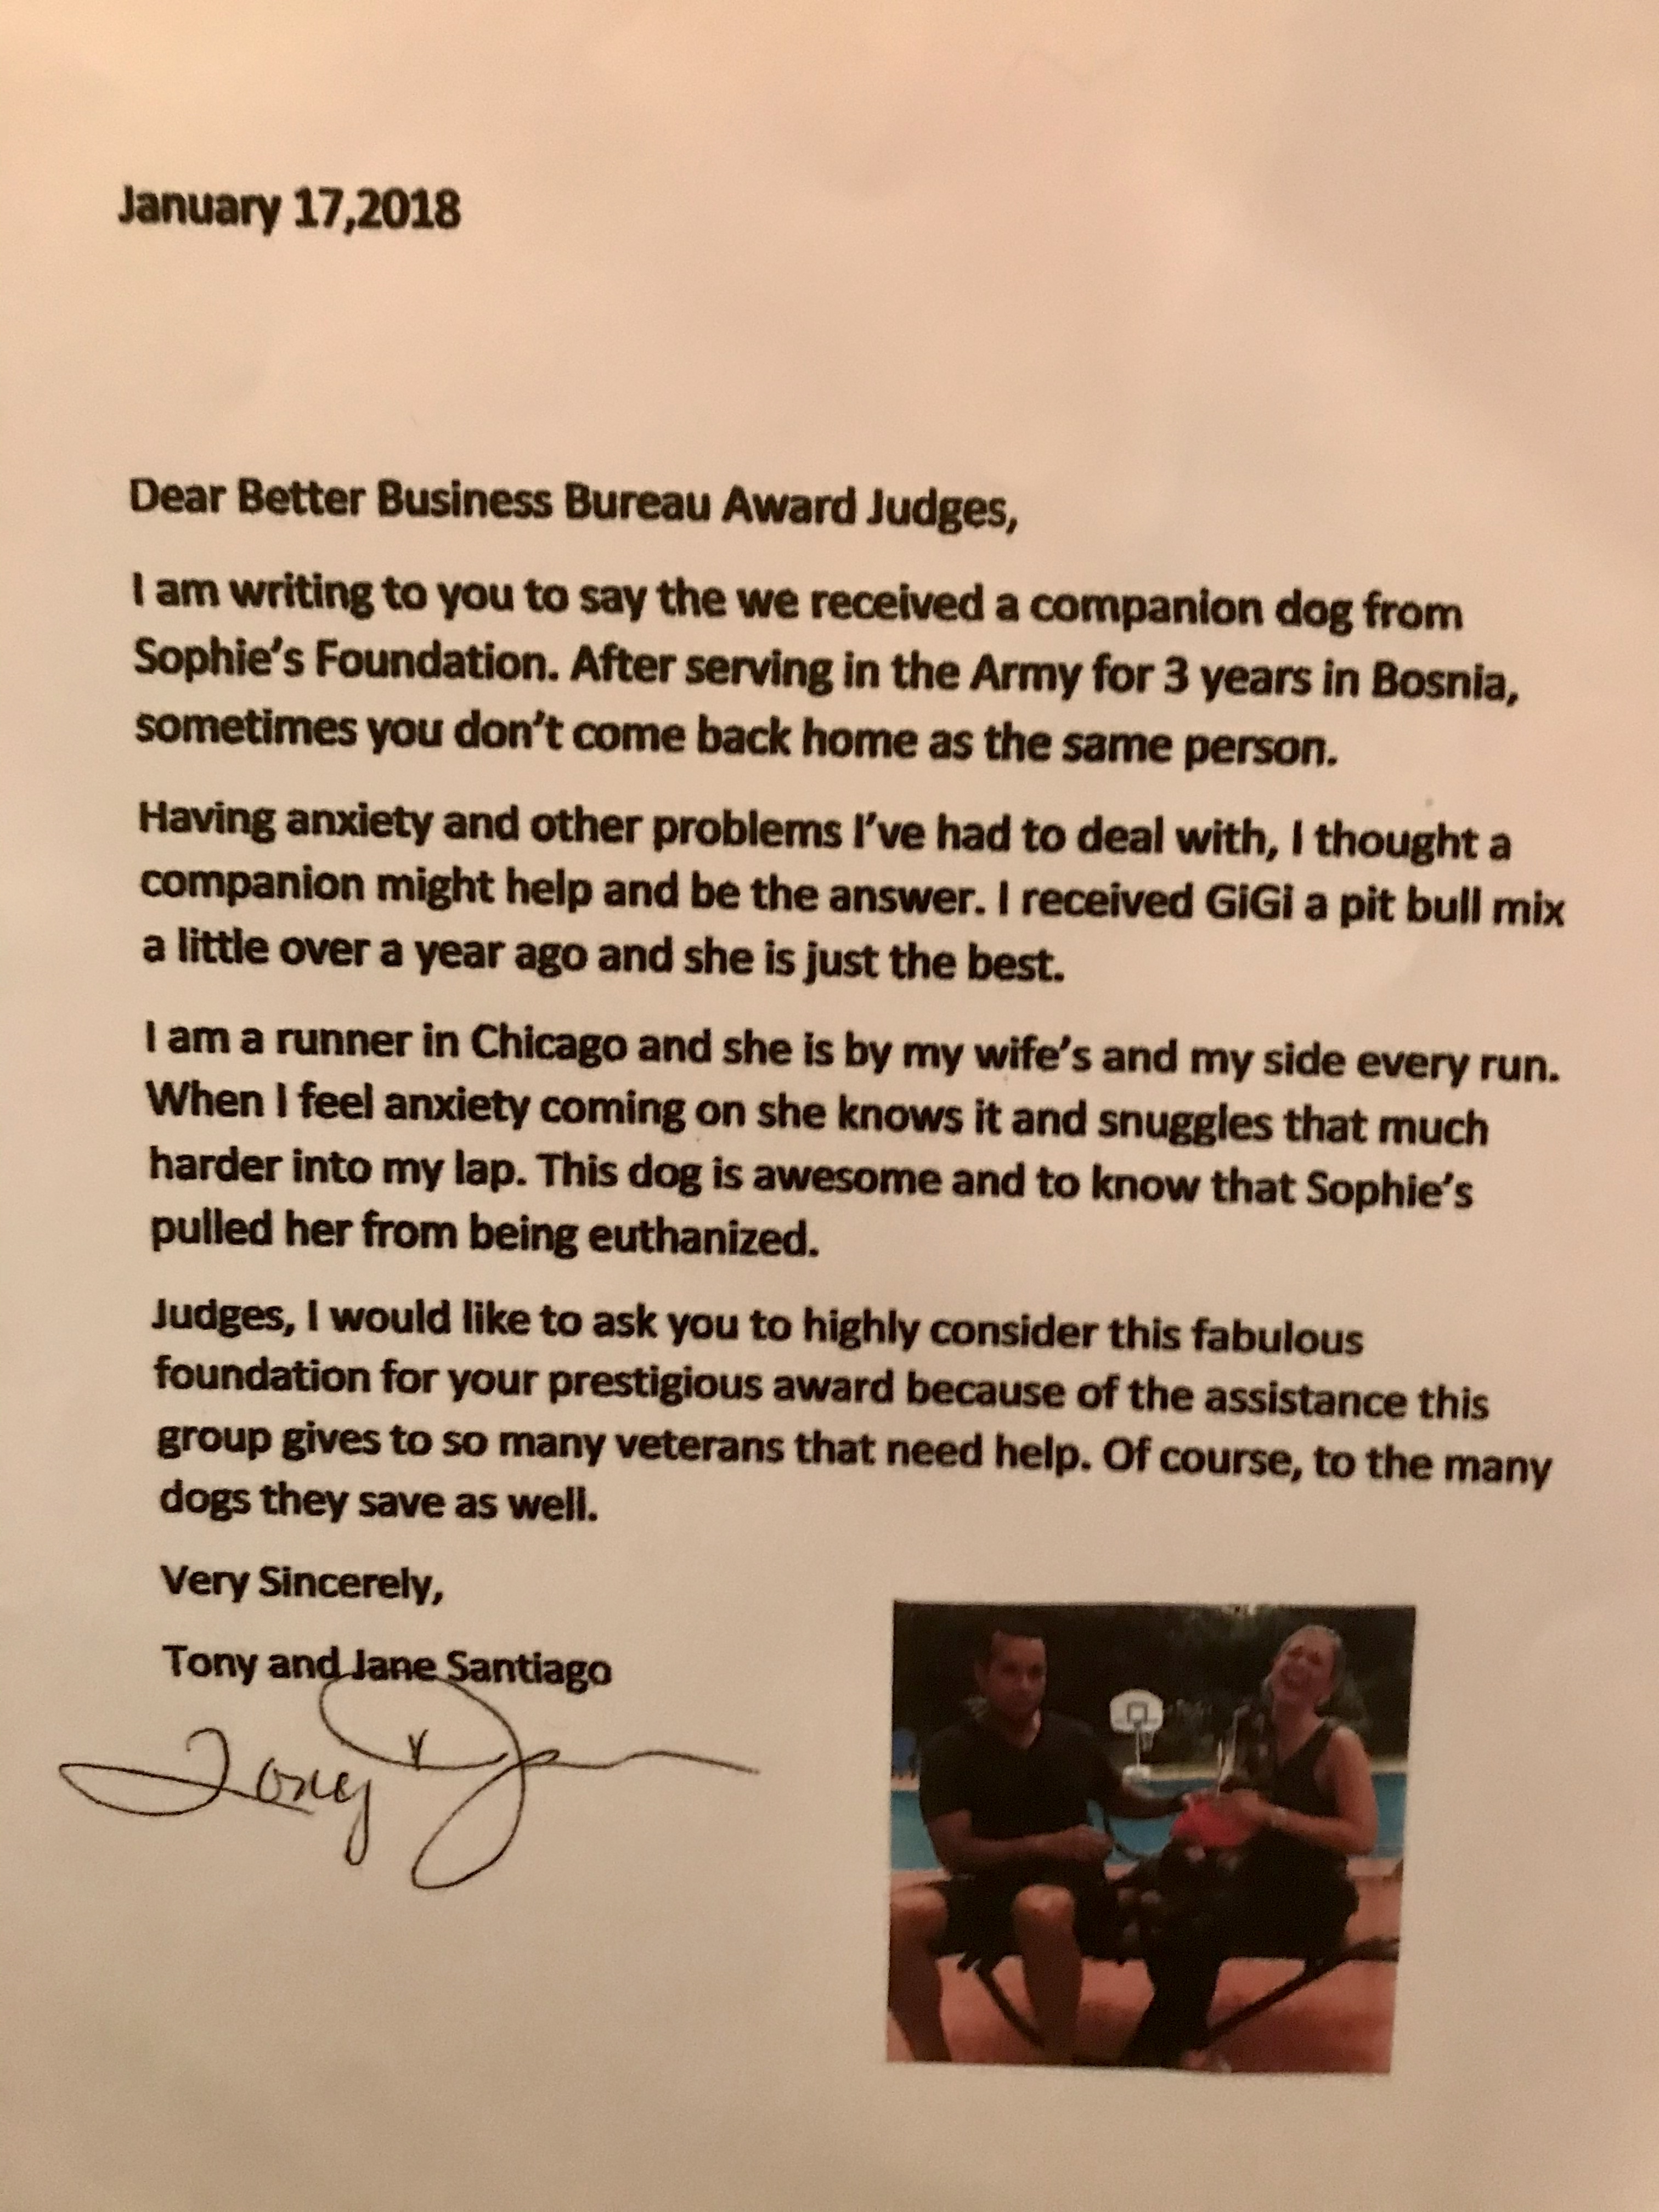 January 17,2018
Dear Better Business Bureau Award Judges,
I am writing to you to say the we received a companion dog from
Sophie's Foundation. After serving in the Army for 3 years in Bosnia,
sometimes you don't come back home as the same person.
Having anxiety and other problems I've had to deal with, I thought a
companion might help and be the answer. I received GiGi a pit bull mix
a little over a year ago and she is just the best.
I am a runner in Chicago and she is by my wife's and my side every run.
When I feel anxiety coming on she knows it and snuggles that much
harder into my lap. This dog is awesome and to know that Sophie's
pulled her from being euthanized.
Judges, I would like to ask you to highly consider this fabulous
foundation for your prestigious award because of the assistance this
group gives to so many veterans that need help. Of course, to the many
dogs they save as well.
Very Sincerely,
Tony and Jane Santiago
Tony